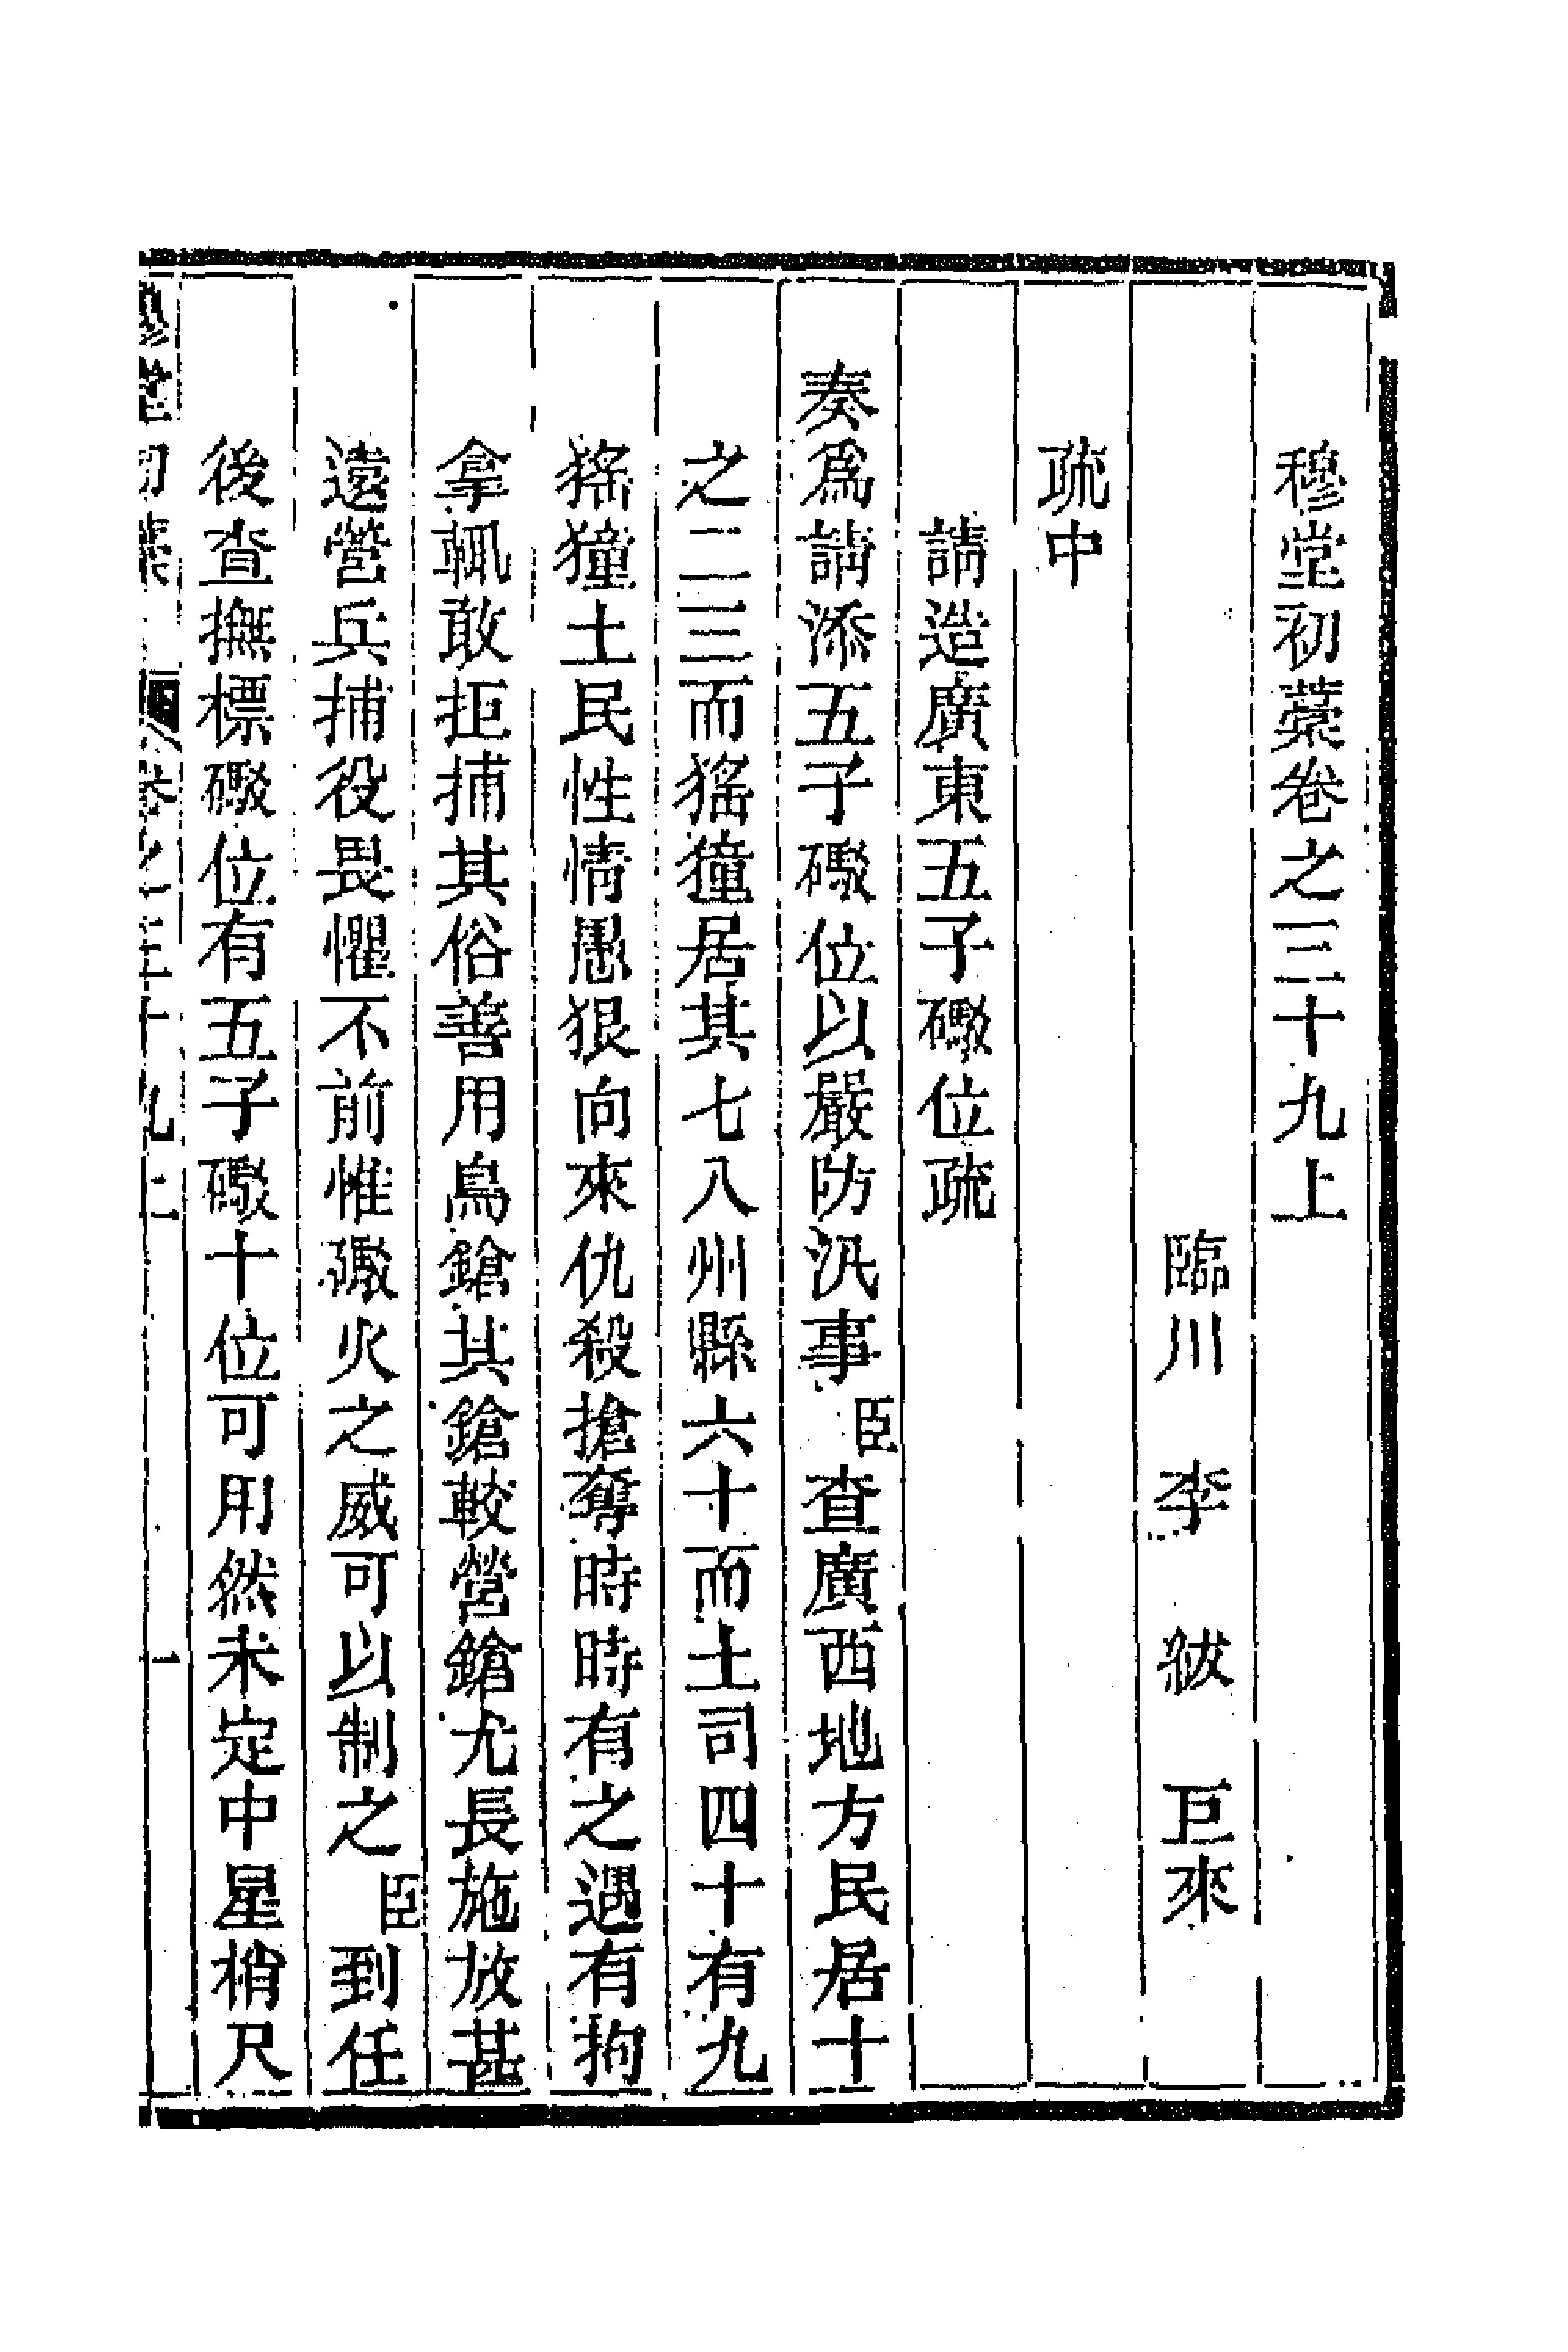 穆堂初藁卷之三十九上
臨川李紱巨來
疏中
請造廣東五子礮位疏
奏爲請添五子礮位以嚴防汛事臣查廣西地方民居十
之二三而猺獞居其七八州縣六十而土司四十有九
猺獞土民性情愚狠向來仇殺搶奪時時有之遇有拘
拿輒敢拒捕其俗善用鳥鎗其鎗較營鎗尤長施放甚
遠營兵捕役畏懼不前惟礮火之威可以制之臣到任
後查撫標礮位有五子礮十位可用然未定中星梢尺
穆堂初藁 卷之三十九上 一